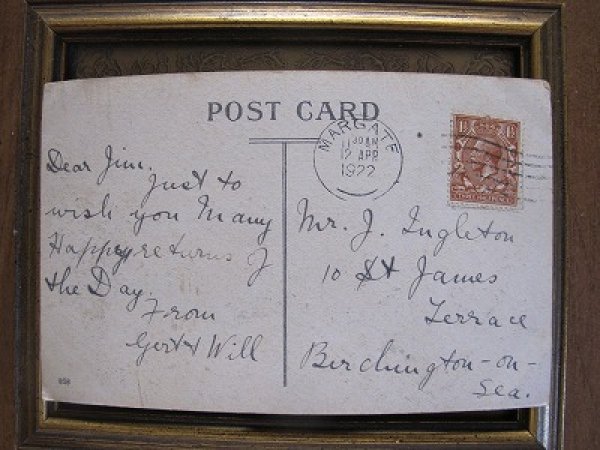 POST CARD
MARGATE
11 30 AM
12 APR
1922
Dear Jim.
Just to
wish you Many
Happy returns of
the Day.
From
Gert & Will
Mr. J. Ingleton
10 St James
Terrace
Birchington-on-
Sea.